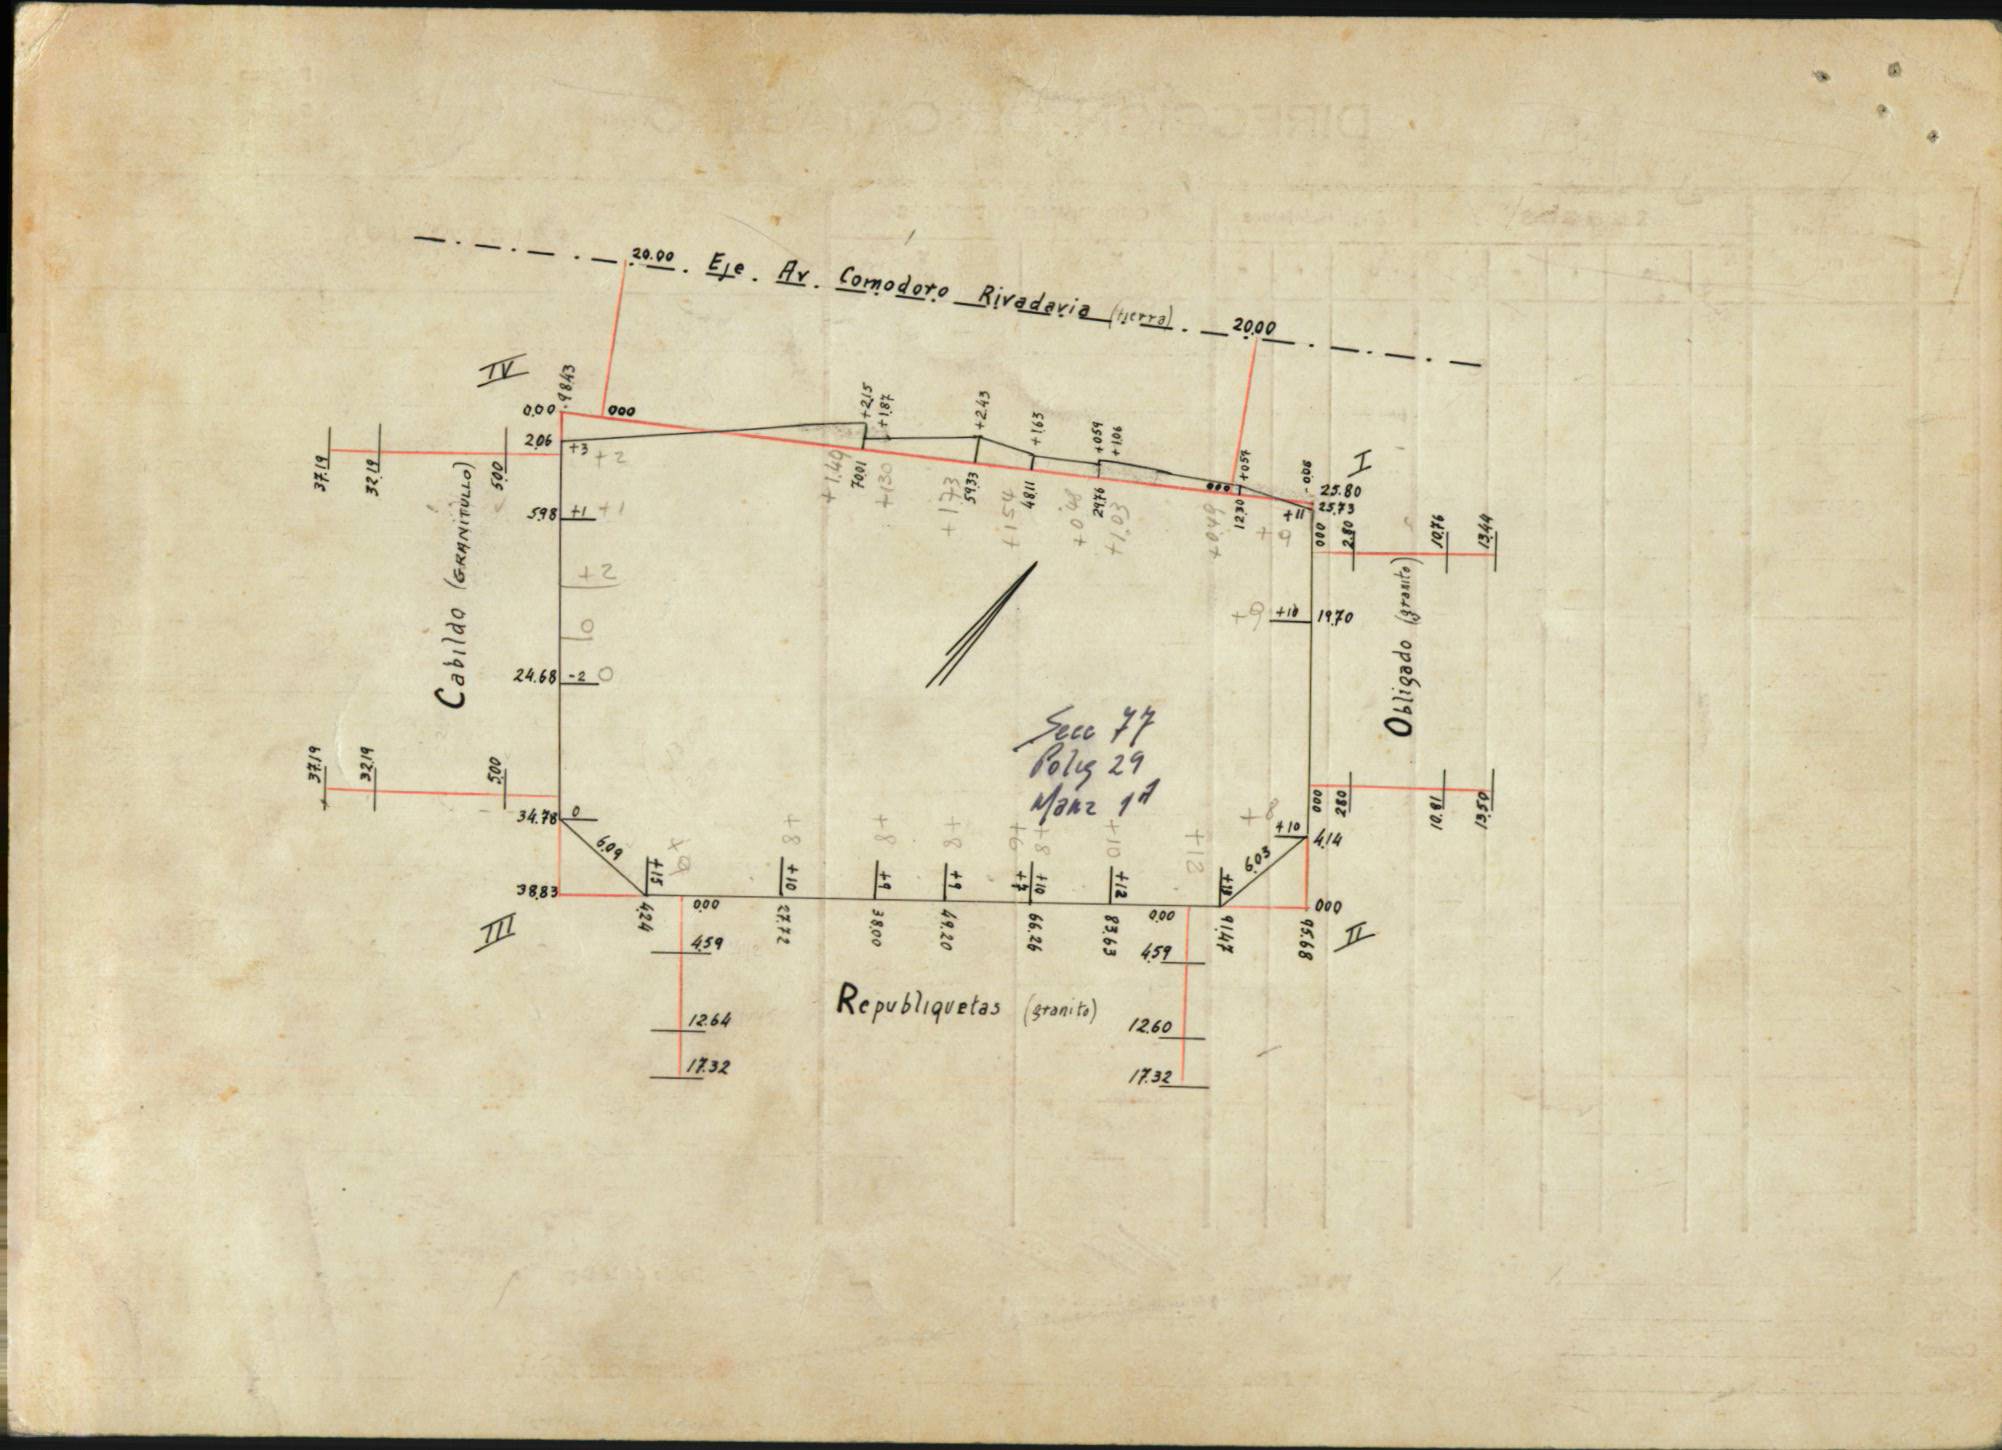 20.00 Eje. Av. Comodoro Rivadavia (tierra) 20.00
IV
98.43
0.00
000
2.06
+3
+2
37.19
32.19
5.00
+2.15
+1.87
+2.43
+1.63
+0.59
+1.06
+0.57
-0.06
I
25.80
25.73
+1.49
70.01
+1.30
+1.73
59.33
+1.54
48.11
+0.48
29.76
+1.03
+0.49
000
12.30
+11
+9
000
2.80
10.76
13.44
5.98
+1
+1
+2
0
Cabildo (GRANITULLO)
24.68
-2
0
+9
+10
19.70
Obligado (granito)
Secc 77
Polig 29
Manz 1A
37.19
32.19
5.00
34.78
0
6.09
38.83
III
+15
+8
+8
+8
+6
+8
+10
+12
+8
+10
4.14
6.03
000
2.80
10.91
13.50
+10
+9
+9
+7
+10
+12
000
II
4.24
0.00
27.72
38.00
49.20
66.26
83.63
0.00
91.47
95.68
4.59
4.59
Republiquetas (granito)
12.64
12.60
17.32
17.32